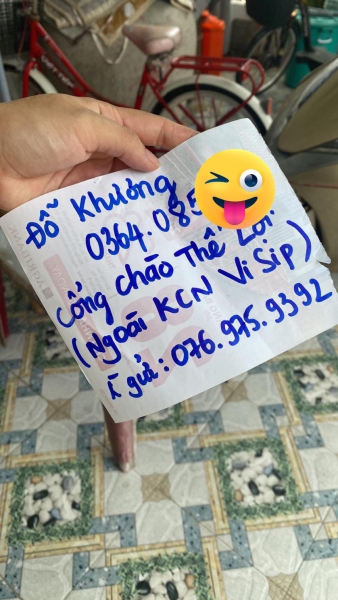 Đỗ Khương
0364.085
Cổng chào Thế Lợi
(Ngoài KCN Vi Sip)
gửi: 076.975.9392